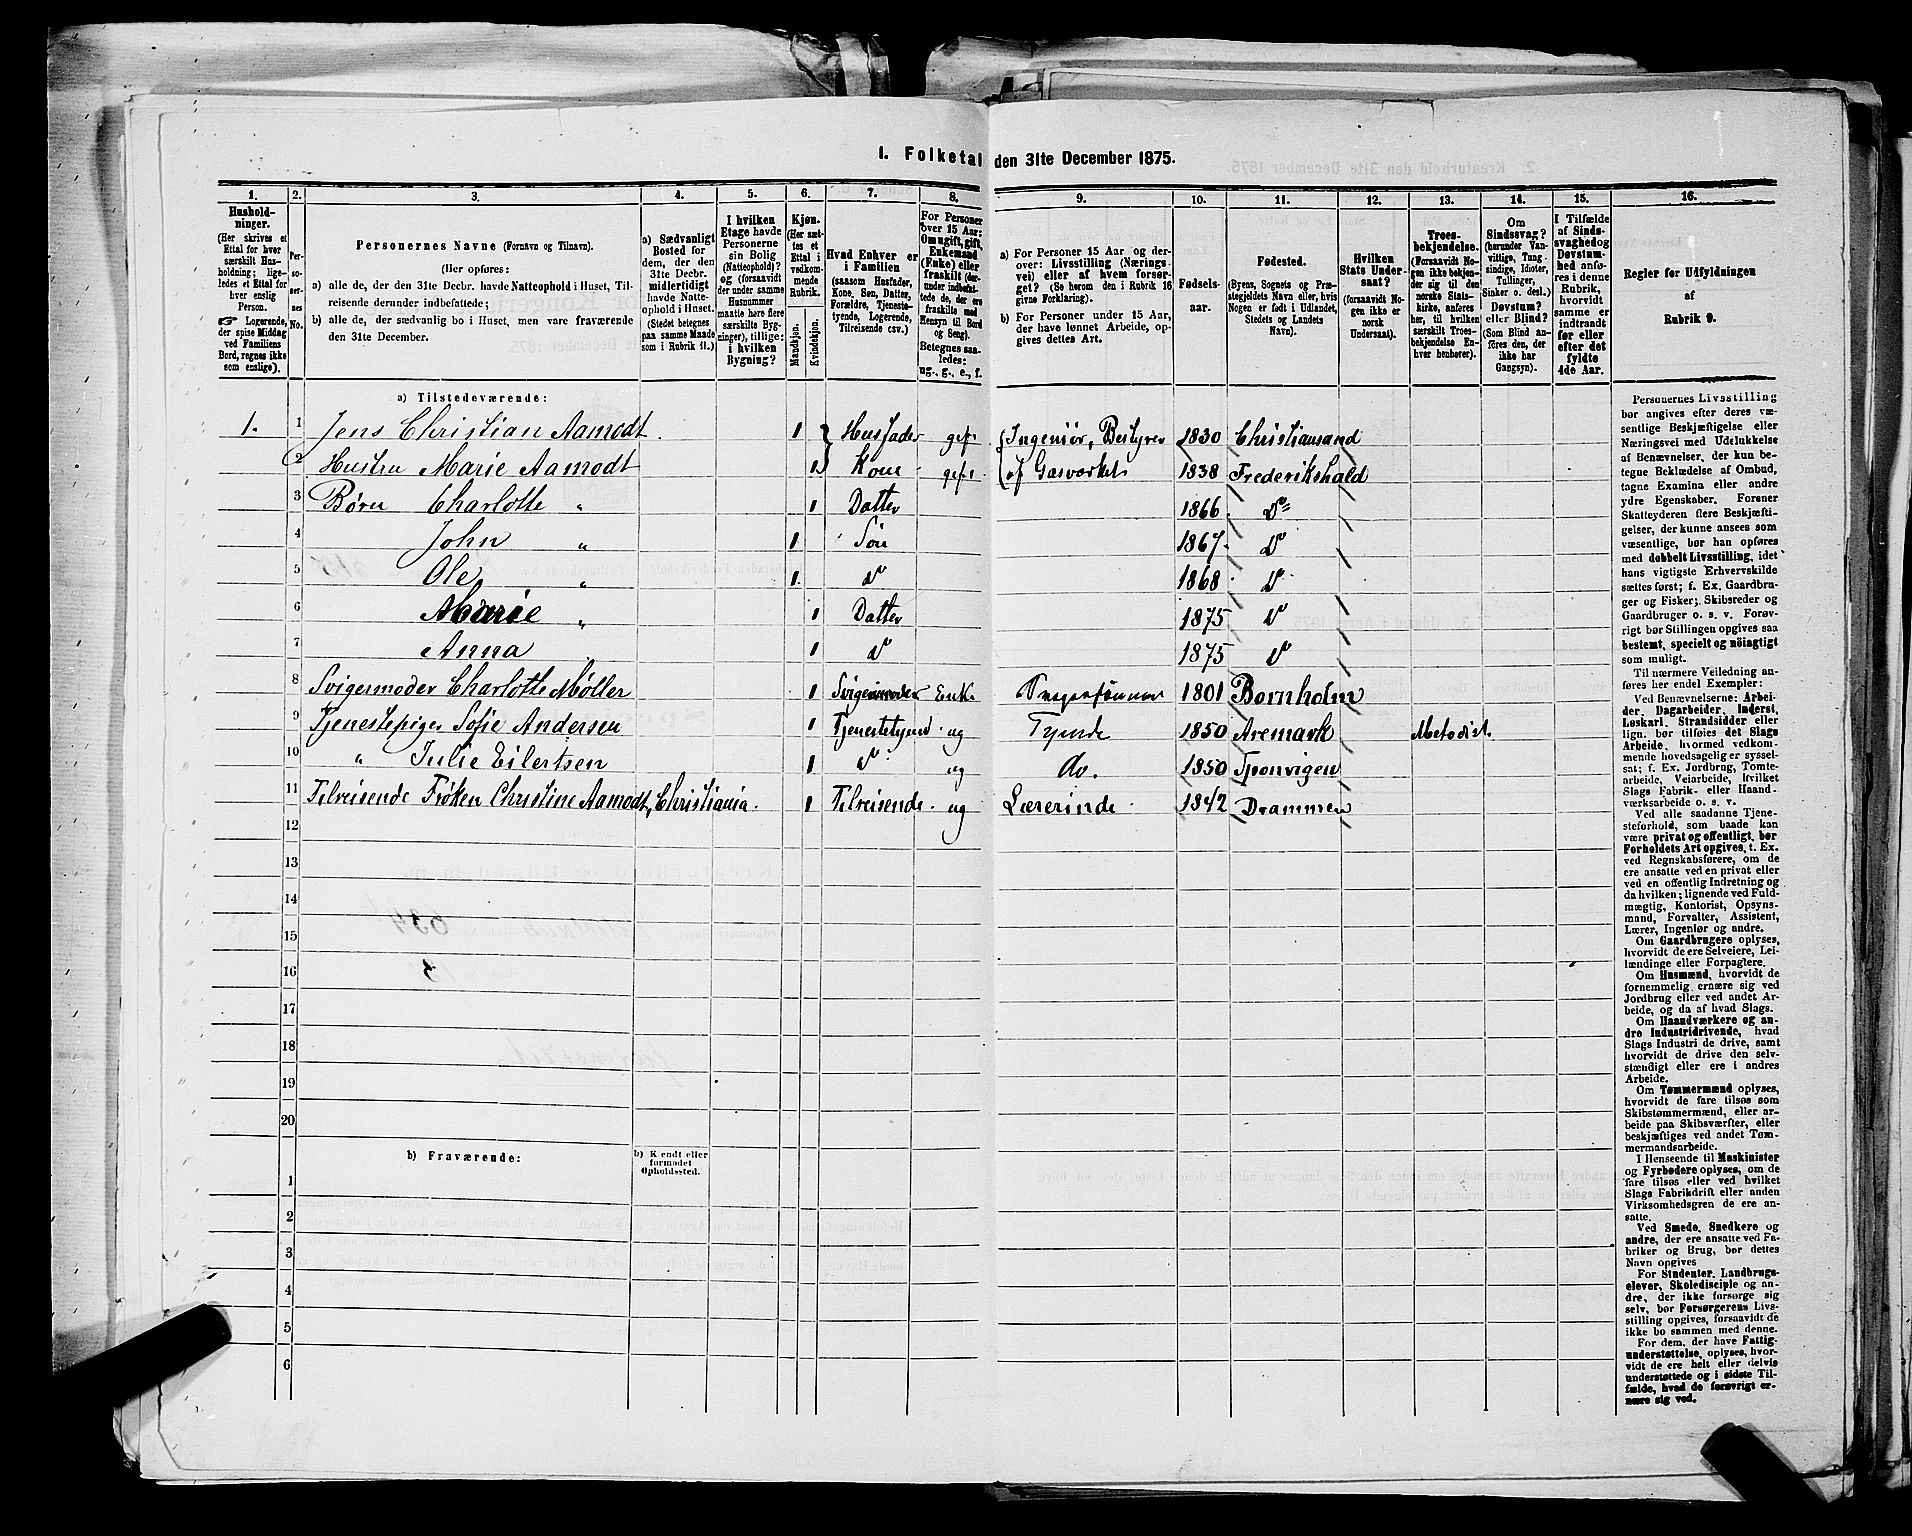 1. Folketal den 31te December 1875.
1. 2. 3. 4. 5. 6. 7. 8. 9. 10. 11. 12. 13. 14. 15. 16.
Husholdninger.
(Her skrives et
Ettal for hver
særskilt Husholdning;
ligeledes et Ettal for
hver enslig
Person.
☞ Logerende,
der spise Middag
ved Familiens
Bord, regnes ikke
som enslige).
Personernes No.
Personernes Navne (Fornavn og Tilnavn).
(Her opføres:
a) alle de, der den 31te Decbr. havde Natteophold i Huset, Tilreisende derunder indbefattede;
b) alle de, der sædvanlig bo i Huset, men vare fraværende den 31te December.
a) Sædvanligt
Bosted for
dem, der den
31te Decbr.
midlertidigt
havde Natteophold i Huset.
(Stedet betegnes
paa samme Maade
som i Rubrik 11.)
I hvilken
Etage havde
Personerne
sin Bolig
(Natteophold)?
og (forsaavidt
der under samme
Husnummer
maatte høre flere
særskilte Bygninger), tillige:
i hvilken
Bygning?
Kjøn.
(Her sættes et
Ettal i
vedkommende
Rubrik.
Mandkjøn.
Kvindekjøn.
Hvad Enhver er
i Familien
(saasom Husfader,
Kone, Søn, Datter,
Forældre, Tjenestetyende, Logerende,
Tilreisende csv.)
For Personer
over 15 Aar:
Om ugift, gift,
Enkemand
(Enke) eller
fraskilt (derunder indbefattede de, der ere
fraskilte med
Hensyn til Bord
og Seng).
Betegnes saaledes:
ug., g., e., f.
a) For Personer 15 Aar og derover: Livsstilling (Næringsvei) eller af hvem forsørget? (Se herom den i Rubrik 16 givne Forklaring).
b) For Personer under 15 Aar, der have lønnet Arbeide, opgives dettes Art.
Fødselsaar.
Fødested.
(Byens, Sognets og Præstegjeldets Navn eller, hvis
Nogen er født i Udlandet,
Stedets og Landets
Navn).
Hvilken
Stats Undersaat?
(forsaavidt Nogen ikke er
norsk
Undersaat).
Troesbekjendelse.
(Forsaavidt Nogen ikke bekjender sig til den
norske Statskirke, anføres
her, til hvilken
særskilt Troesbekjendelse Enhver henhører).
Om
Sindssvag?
(herunder Vanvittige, Tungsindige, Idioter,
Tullinger,
Sinker o. desl.)
Døvstum?
eller Blind?
(Som Blind anføres den, der
ikke har
Gangsyn).
I Tilfælde
af Sindssvaghed og
Døvstumhed anføres i denne
Rubrik,
hvorvidt
samme er
indtraadt
før eller
efter det
fyldte
4de Aar.
Regler for Udfyldningen
af
Rubrik 9.
a) Tilstedeværende:
1. 1 Jens Christian Aamodt 1 Husfader gift Ingeniör, Bestyrer 1830 Christiansand
2 Hustru Marie Aamodt 1 Kone gift af Gasværket 1838 Frederikshald
3 Børn Charlotte „ 1 Datter 1866 Do
4 John „ 1 Søn 1867 Do
5 Ole „ 1 Do 1868 Do
6 Marie „ 1 Datter 1875 Do
7 Anna 1 Do 1875 Do
8 Svigermoder Charlotte Møller 1 Svigermoder Enke 1801 Bornholm
9 Tjenestepige Sofie Andersen 1 Tjenestetyend ug Tyende 1850 Aremark Metodist
10 „ Julie Eilertsen 1 Do ug do. 1850
11 Tilreisende Frøken Christine Aamodt, Christiania. 1 Tilreisende ug Lærerinde 1842 Drammen
12
13
14
15
16
17
18
19
20
b) Fraværende:
b) Kjendt eller
formodet
Opholdssted.
1
2
3
4
5
6
Personernes Livsstilling
bør angives efter deres væsentlige Beskjæftigelse eller
Næringsvei med Udelukkelse
af Benævnelser, der kun betegne Beklædelse af Ombud,
tagne Examina eller andre
ydre Egenskaber. Forener
Skatteyderen flere Beskjæftigelser, der kunne ansees som
væsentlige, bør han opføres
med dobbelt Livsstilling, idet
hans vigtigste Erhvervskilde
sættes først; f. Ex. Gaardbruger og Fisker; Skibsreder og
Gaardbruger o. s. v. Forøvrigt bør Stillingen opgives saa
bestemt, specielt og nöiagtigt
som muligt.
Til nærmere Veiledning anføres her endel Exempler:
Ved Benævnelserne: Arbeider, Dagarbeider, Inderst,
Løskarl, Strandsidder eller
lign. bør tilføies det Slags
Arbeide, hvormed vedkommende hovedsagelig er sysselsat; f. Ex. Jordbrug, Tomtearbeide, Veiarbeide, hvilket
Slags Fabrik- eller Haandværksarbeide o. s. v.
Ved alle saadanne Tjenesteforhold, som baade kan
være privat og offentligt, bør
Forholdets Art opgives, t. Ex.
ved Regnskabsførere, om de
ere ansatte ved en privat eller
ved en offentlig Indretning og
da hvilken; lignende ved Fuldmægtig, Kontorist, Opsynsmand, Forvalter, Assistent,
Lærer, Ingeniør og andre.
Om Gaardbrugere oplyses,
hvorvidt de ere Selveiere, Leilændinge eller Forpagtere.
Om Husmænd, hvorvidt de
fornemmelig ernære sig ved
Jordbrug eller ved andet Arbeide, og da af hvad Slags.
Om Haandværkere og andre Industridrivende, hvad
Slags Industri de drive, samt
hvorvidt de drive den selvstændigt eller ere i andres
Arbeide.
Om Tømmermænd oplyses,
hvorvidt de fare tilsøs som
Skibstømmermænd, eller arbeide paa Skibsværfter, eller
beskjæftiges ved andet Tømmermandsarbeide.
I Henseende til Maskinister
og Fyrbødere oplyses, om de
fare tilsøs eller ved hvilket
Slags Fabrikdrift eller anden
Virksomhedsgren de ere ansatte.
Ved Smede, Snedkere og
andre, der ere ansatte ved Fabriker og Brug, bør dettes
Navn opgives
For Studenter, Landbrugselever, Skoledisciple og andre, der ikke forsørge sig
selv, bør Forsørgerens Livsstilling opgives, forsaavidt de
ikke bo sammen med denne.
For dem, der have Fattigunderstøttelse, oplyses, hvorvidt de ere helt eller delvis
understøttede og i sidste Tilfælde, hvad de forøvrigt ernære sig ved.